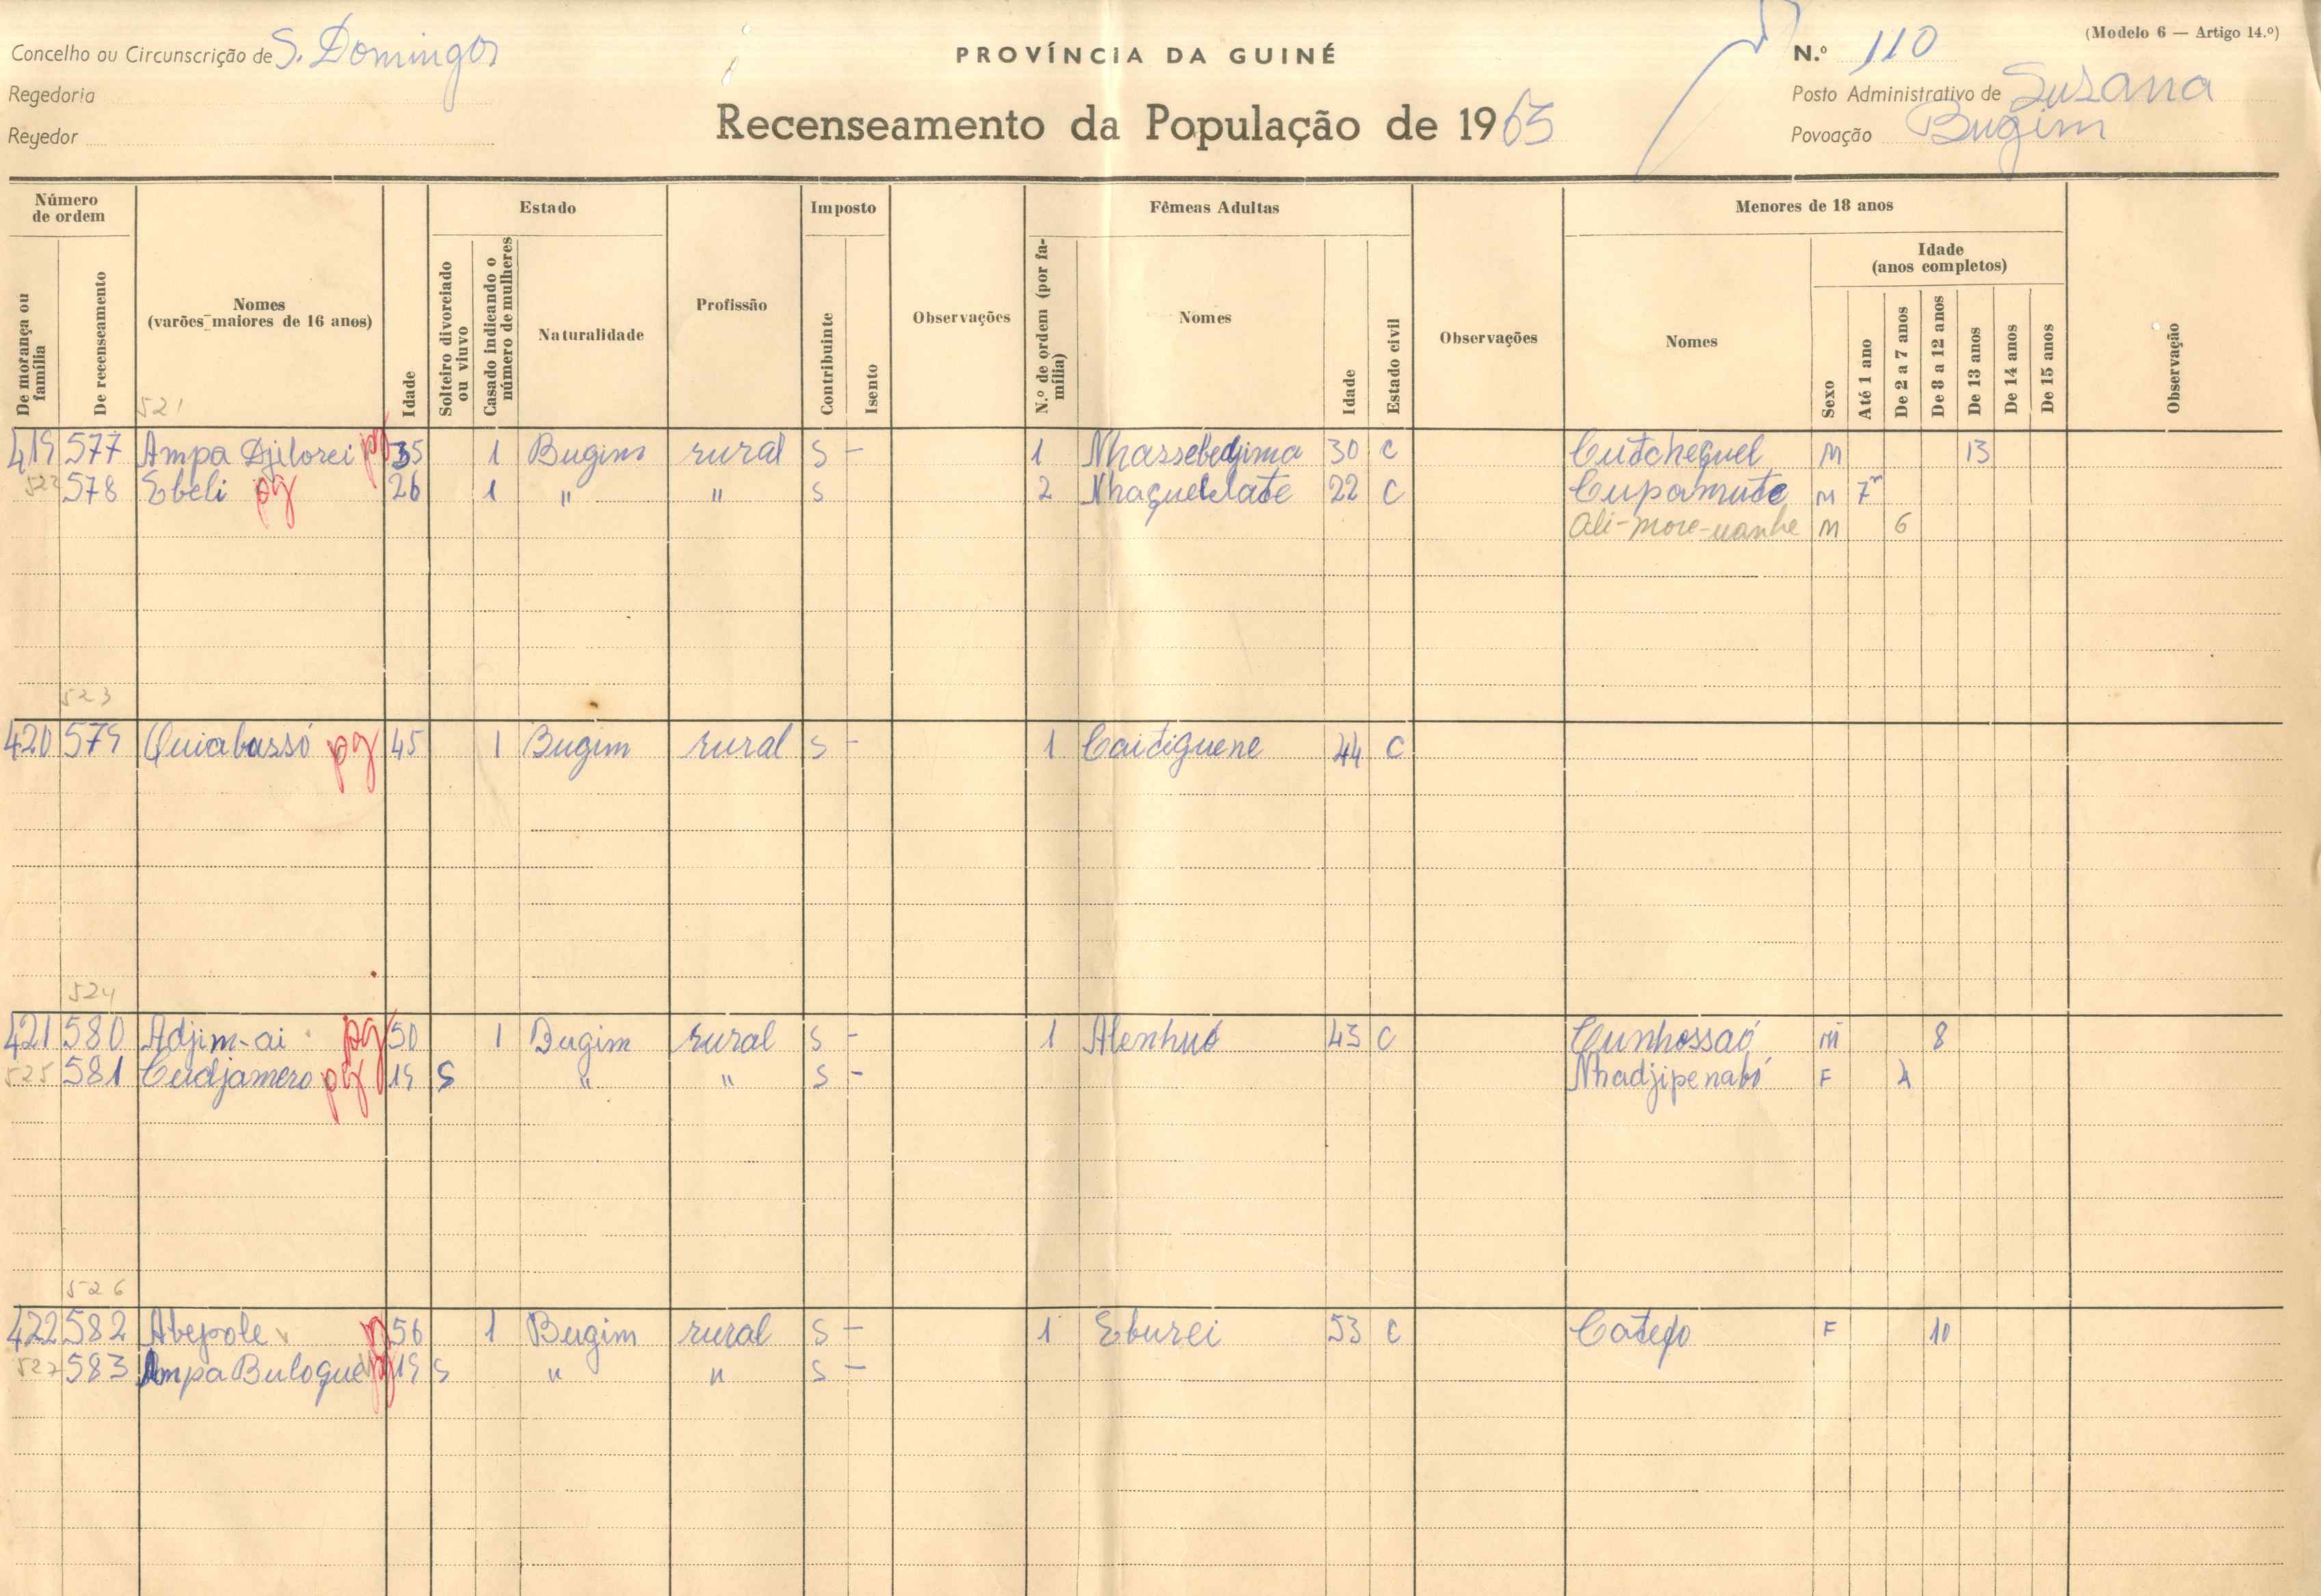 (Modelo 6 — Artigo 14.º)
Concelho ou Circunscrição de S. Domingos
PROVÍNCIA DA GUINÉ
N.º 110
Regedoria
Posto Administrativo de Suzana
Regedor
Recenseamento da População de 1965
Povoação Bugim
Número de ordem
Estado
Imposto
Fêmeas Adultas
Menores de 18 anos
De morança ou família
De recenseamento
Nomes (varões maiores de 16 anos)
Idade
Solteiro divorciado ou viuvo
Casado indicando o número de mulheres
Naturalidade
Profissão
Contribuinte
Isento
Observações
N.º de ordem (por família)
Nomes
Idade
Estado civil
Observações
Nomes
Sexo
Idade (anos completos)
Até 1 ano
De 2 a 7 anos
De 8 a 12 anos
De 13 anos
De 14 anos
De 15 anos
Observação
521
419 577 Ampa Djilorei pg 35 1 Bugim rural S - 1 Nhassebedjima 30 C Cutcheguel M 13
522 578 Ebeli pg 26 1 " " S 2 Nhaquelelate 22 C Cupamute M 7m
Ali-more-uanhe M 6
523
420 579 Quiabassó pg 45 1 Bugim rural S - 1 Caitiguene 44 C
524
421 580 Adjim-ai pg 50 1 Bugim rural S - 1 Alenhuó 43 C Cunhossaó M 8
525 581 Cudjamero pg 19 S " " S - Nhadjipenabó F 4
526
422 582 Abepole pg 56 1 Bugim rural S - 1 Eburei 53 C Catepo F 10
527 583 Ampa Bulogue pg 19 S " " S -